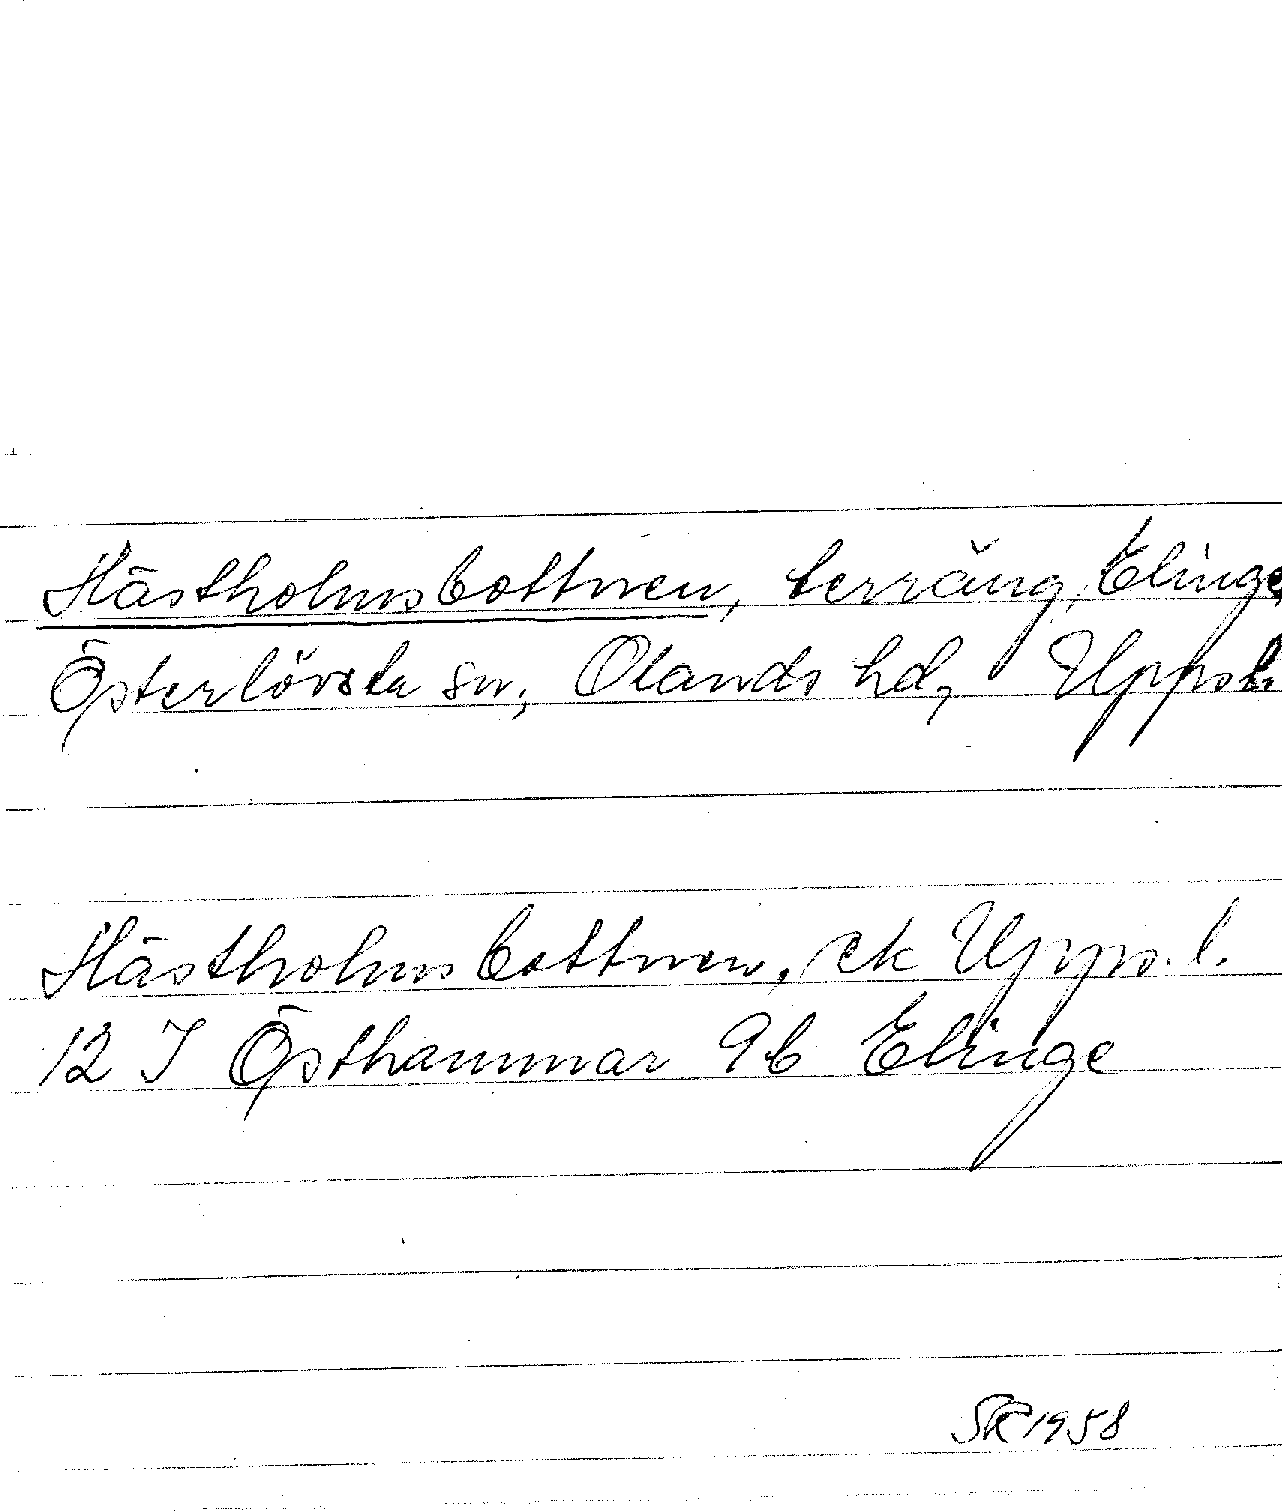 Hästholmsbottnen, terräng, Elinge,
Österlövsta sn, Olands hd, Upps.l.
Hästholmsbottnen, ek Upps.l.
12 I Östhammar 9b Elinge
SR 1958